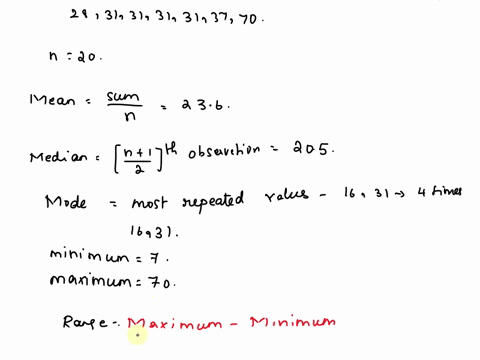 29, 31, 31, 31, 31, 37, 70.
n = 20.
Mean = sum/n = 23.6.
Median = [n+1/2]th observection = 205.
Mode = most repeated value - 16, 31 → 4 times
16, 31.
minimum = 7.
maximum = 70.
Range - Maximum - Minimum